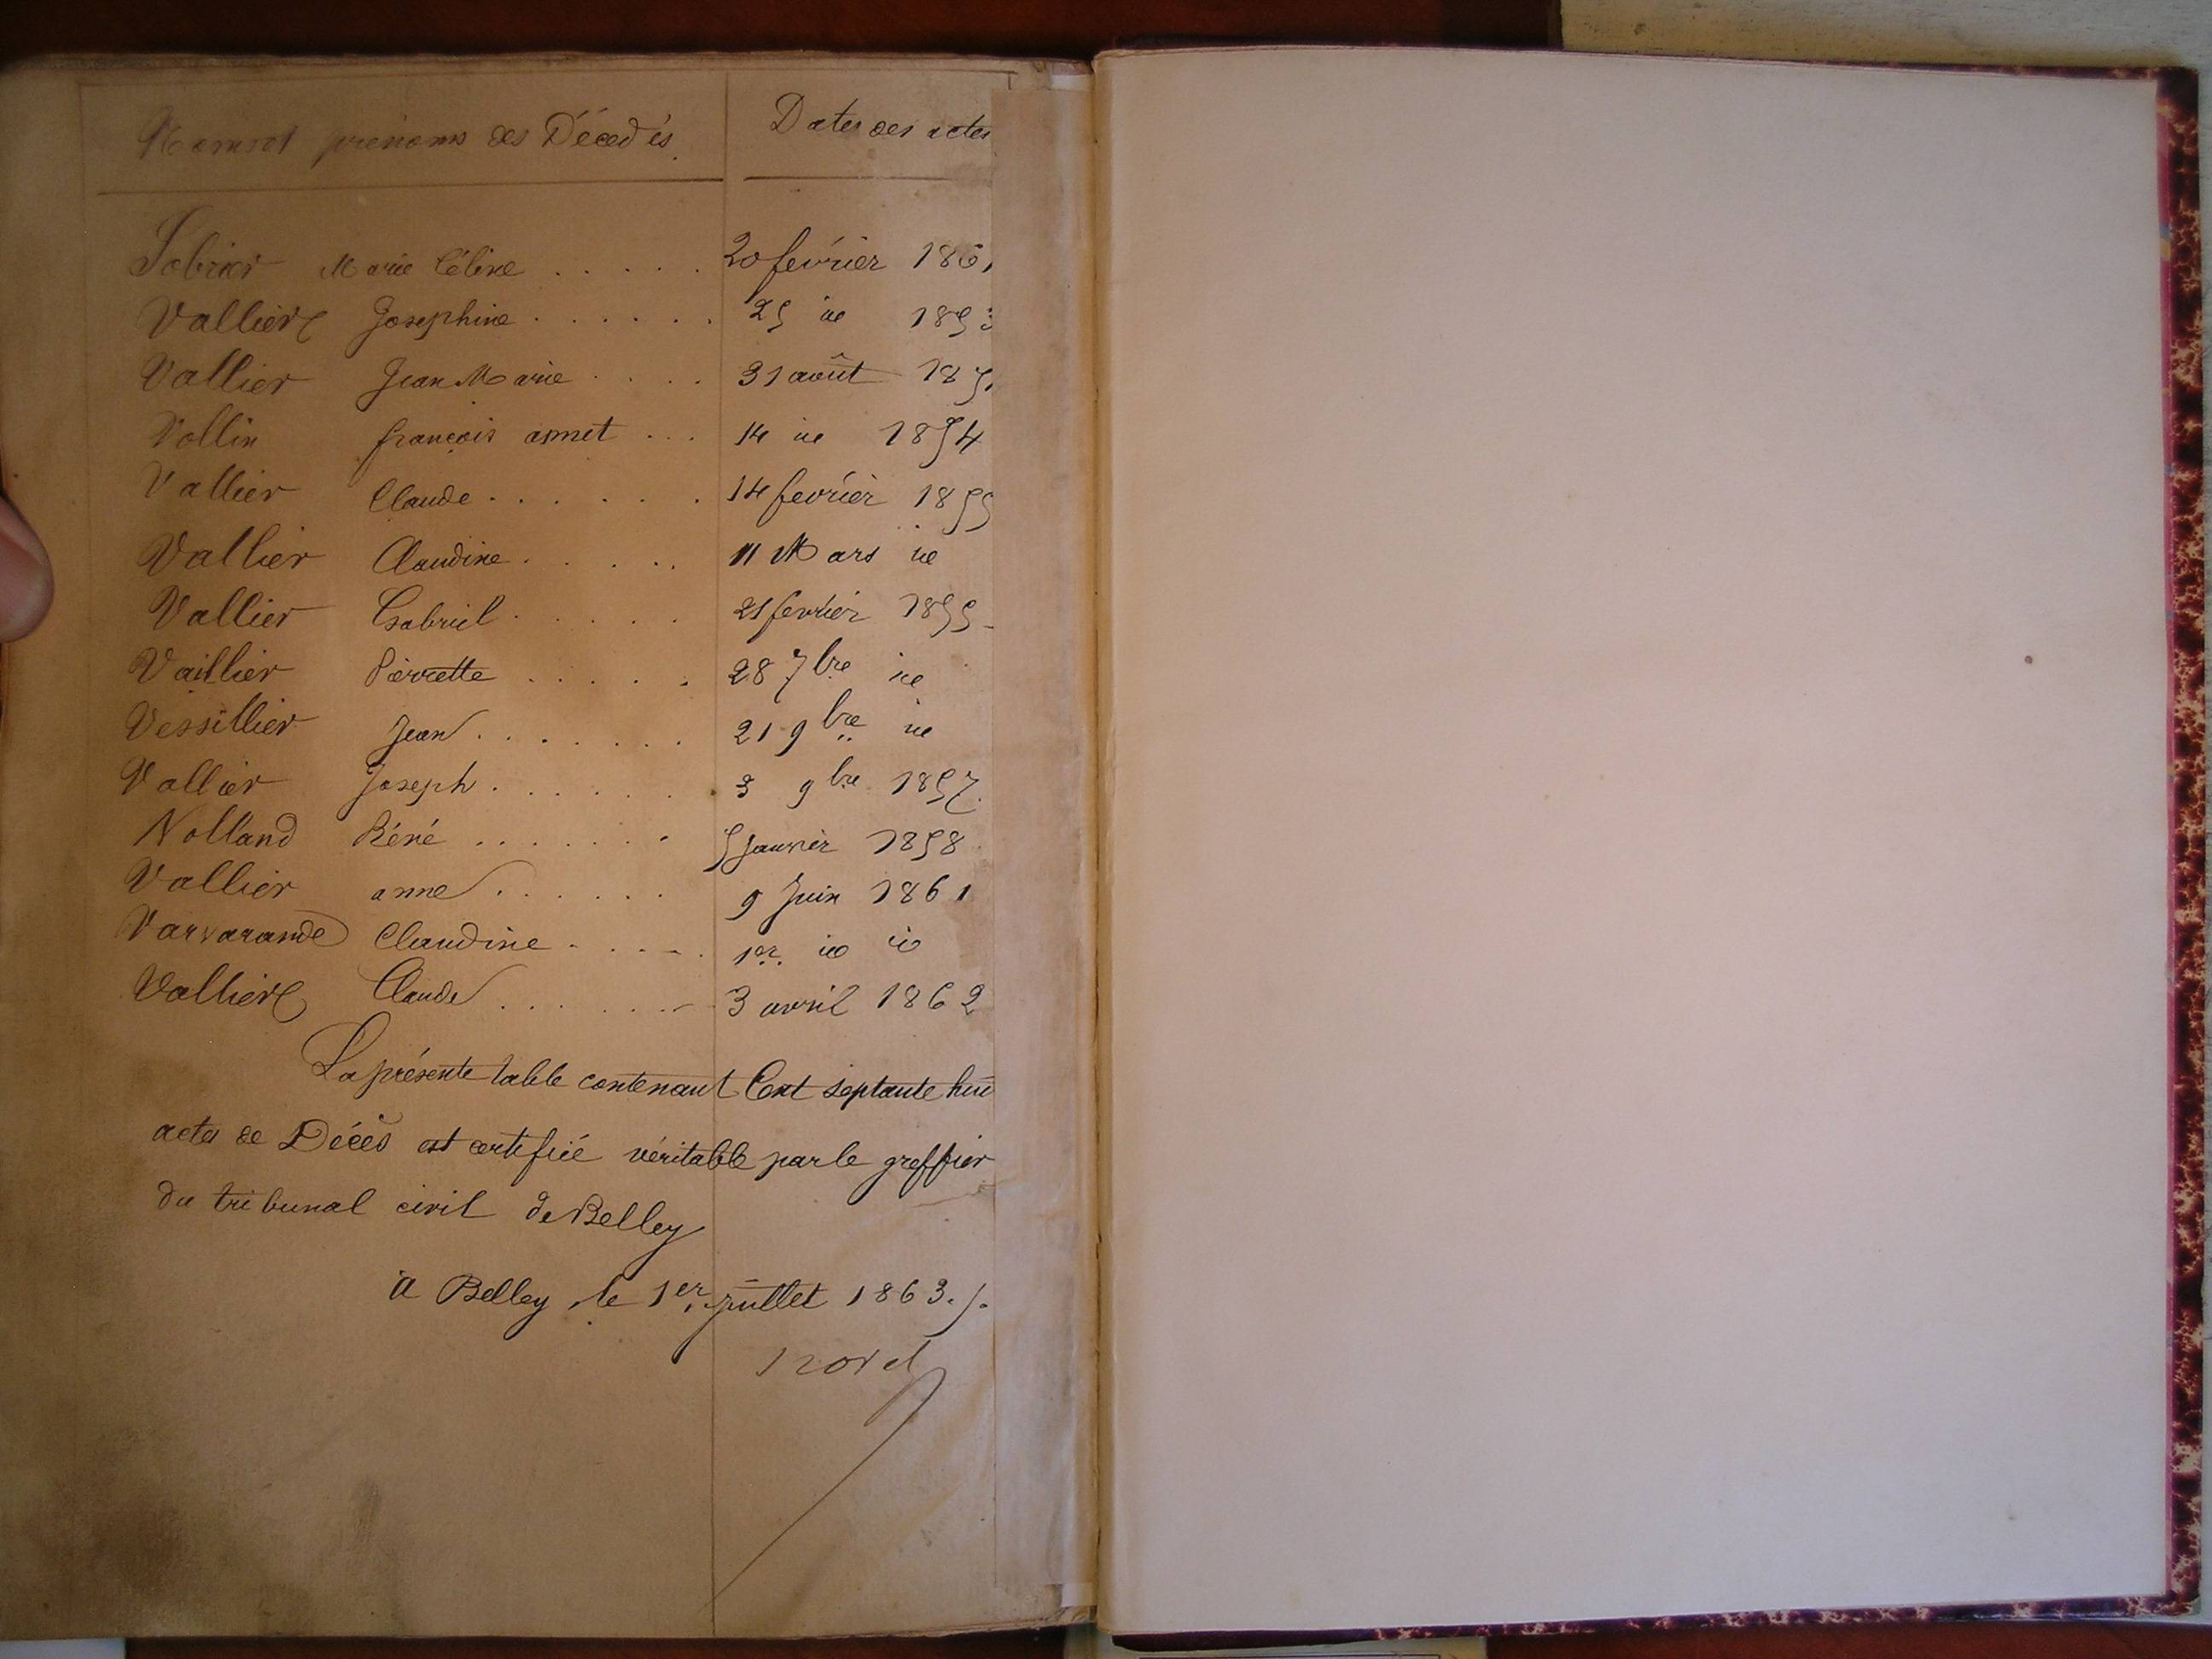 Noms et prénoms des Décédés. Dates des actes
Sobrier Marie Céline . . . . . 20 février 1861
Vallière Josephine . . . . . . 25 ie 1853
Vallier Jean Marie . . . . 31 août
Vollin françois asmet . . . 14 ie 1854
Vallier Claude . . . . . . 14 fevrier 1855
Vallier Claudine . . . . . 11 Mars ie
Vallier Gabriel . . . . . 21 fevrier 1855
Vaillier Pierrette . . . . . 28 7bre ie
Vessillier Jean . . . . . . . 21 9bre ie
Vallier Joseph . . . . . . 3 9bre 1857.
Nolland Réné . . . . . . . 5 Janvier 1858
Vallier anne . . . . . . 9 Juin 1861
Varvarande Claudine . . . . . 1er. ie ie
Vallière Claude . . . . . . 3 avril 1862
La présente table contenant Cent septante hui
actes de Décès est certifié véritable par le greffier
du tribunal civil de Belley
à Belley, le 1er. juillet 1863./.